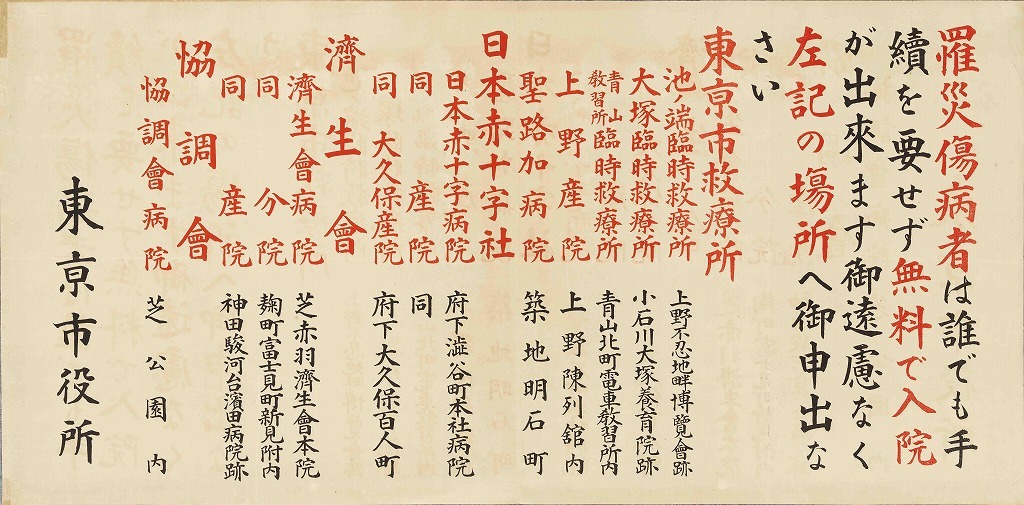 罹災傷病者は誰でも手
續を要せず無料で入院
が出來ます御遠慮なく
左記の場所へ御申出な
さい
東京市救療所
池ノ端臨時救療所 上野不忍池畔博覽會跡
大塚臨時救療所 小石川大塚養育院跡
青山教習所臨時救療所 青山北町電車教習所内
上野産院 上野陳列舘内
聖路加病院 築地明石町
日本赤十字社
日本赤十字病院 府下澁谷町本社病院
同産院 同
同大久保産院 府下大久保百人町
濟生會
濟生會病院 芝赤羽濟生會本院
同分院 麹町富士見町新見附内
同産院 神田駿河台濱田病院跡
協調會
協調會病院 芝公園内
東京市役所